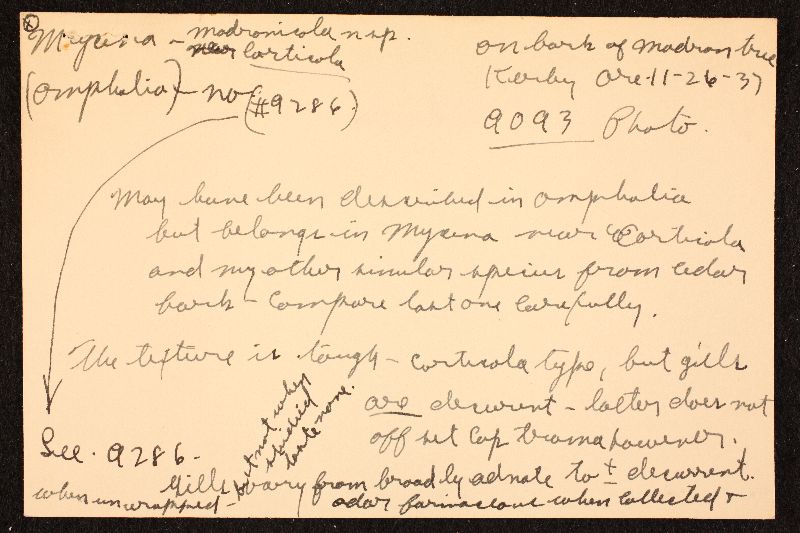 Mycena - madronicola n sp.
near corticola
(Omphalia) - no (#9286)
on bark of madron tree
Kerby Ore. 11-26-37
9093 Photo.
May have been described in omphalia
but belongs in Mycena near Corticola
and my other similar species from cedar
bark - Compare last one carefully.
The texture is tough - corticola type, but gills
are decurrent - latter does not
off set cap trama however.
See. 9286 -
Gills vary from broadly adnate to ± decurrent.
odor farinaceous when collected &
when unwrapped -
but not when
studied
taste none.